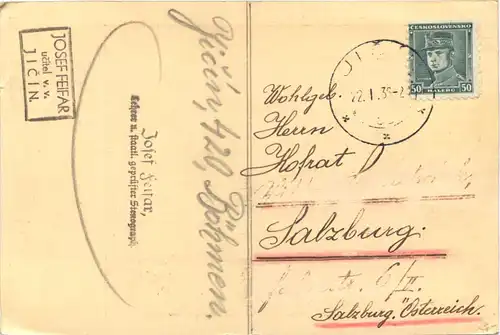 JOSEF FEIFAR
učitel v. v.
JIČÍN.
Josef Feifar,
Lehrer u. staatl. geprüfter Stenograph,
Jičín, 420, Böhmen.
ČESKOSLOVENSKO
50 HALÉŘŮ 50
JIČ
22.1.3
Wohlgeb.
Herrn
Hofrat
Salzburg.
6/II.
Salzburg. Österreich.